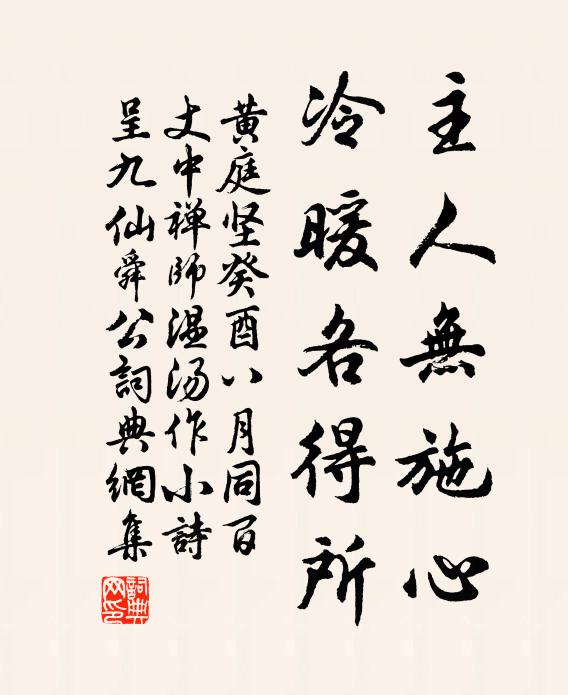 主人無施心
冷暖各得所
黄庭坚癸酉八月同百
丈中禅師温汤作小詩
呈九仙舜公詞典網集
詞典
网印